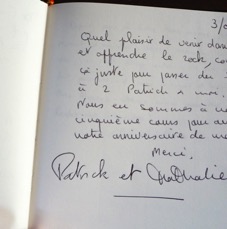 3/
Quel plaisir de venir dans
et apprendre le rock, co
juste pour passer du
à 2 Patrick & moi,
Nous en sommes à no
cinquième cours pour
notre anniversaire de ma
Merci,
Patrick et Nathalie